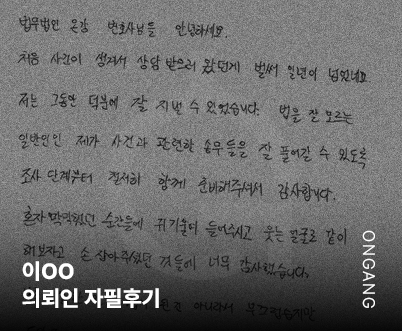 법무법인 온강 변호사님들 안녕하세요.
처음 사건이 생겨서 상담 받으러 왔던게 벌써 일년이 넘었네요
저는 그동안 덕분에 잘 지낼 수 있었습니다. 법을 잘 모르는
일반인인 제가 사건과 관련한 송무들을 잘 풀어갈 수 있도록
조사 단계부터 철저히 함께 준비해주셔서 감사합니다.
혼자 막막했던 순간들에 귀기울여 들어주시고 웃는 얼굴로 같이
해보자고 손 잡아주셨던 것들에 너무 감사했습니다.
아니라서
이OO
의뢰인 자필후기
ONGANG